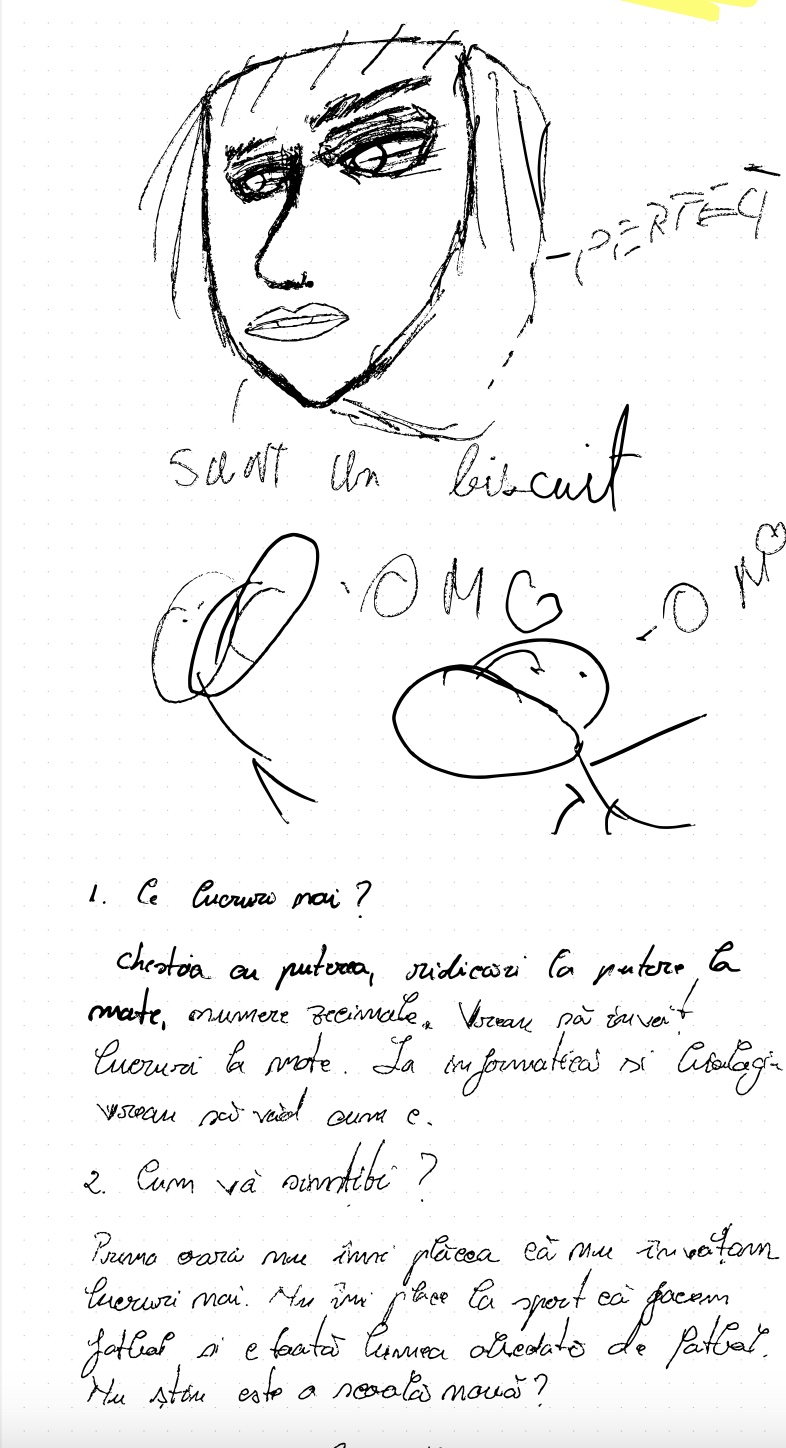 PERFECT
SUNT Un biscuit
OMG
OMG
1. Ce lucruri noi?
Chestia cu puterea, ridicări la putere la
mate, numere zecimale. Vreau să învăț
lucruri la mate. La informatică si biologie
vreau să văd cum e.
2. Cum vă simtiti?
Prima oară nu îmi plăcea că nu învățam
lucruri noi. Nu îmi place la sport că facem
fotbal si e toată lumea obsedată de fotbal.
Nu știu este o scoală nouă?